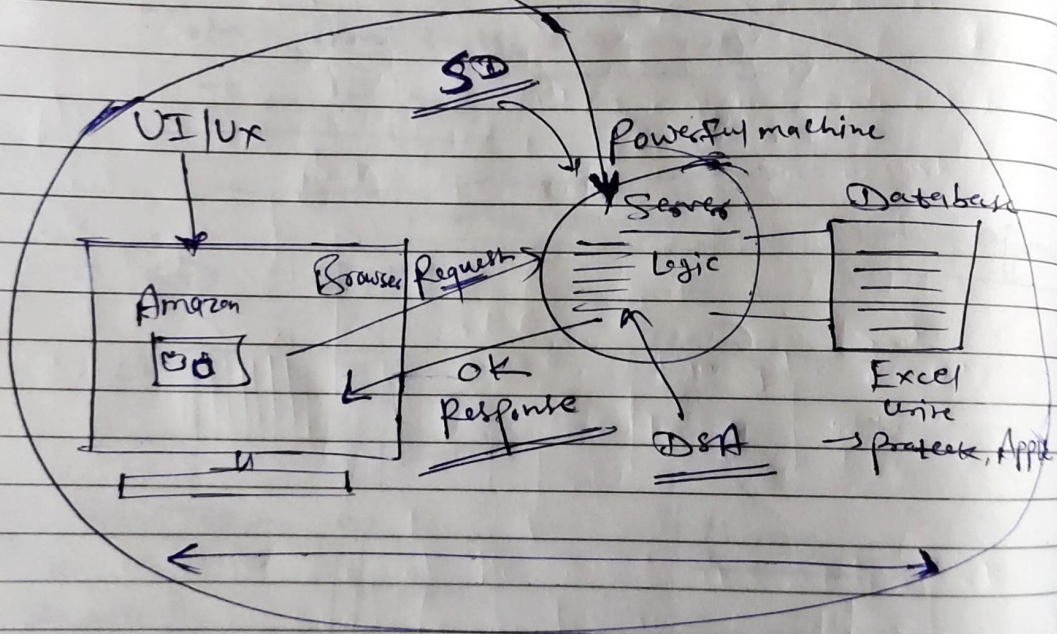 SD
UI/UX
Powerful machine
Server
Database
Browser
Request
Logic
Amazon
OK
Response
DSA
Excel
→ Prateek, Apple